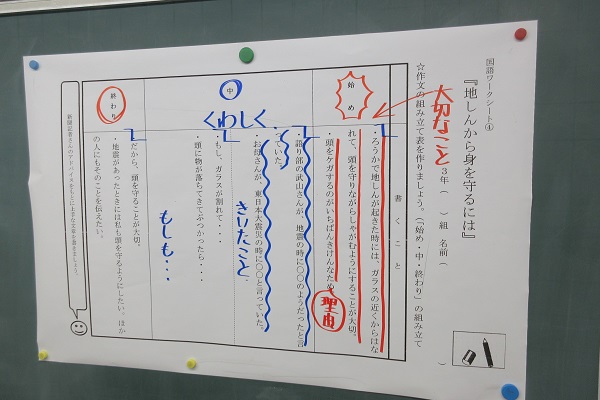 国語ワークシート④
『地しんから身を守るには』
3年（　）組　名前（　　　）
☆作文の組み立て表を作りましょう。（「始め・中・終わり」の組み立て
大切なこと
書くこと
始め
・ろうかで地しんが起きた時には、ガラスの近くからはな
れて、頭を守りながらしゃがむようにすることが大切。
・頭をケガするのがいちばんきけんなため
理由
中
くわしく
・語り部の武山さんが、地震の時に〇〇のようだったと言
っていた。
・お母さんが、東日本大震災の時に〇〇と言っていた。
きいたこと
・もし、ガラスが割れて・・・
・頭に物が落ちてきてぶつかったら・・・
もしも・・・
終わり
・だから、頭を守ることが大切。
・地震があったときには私も頭を守るようにしたい。ほか
の人にもそのことを伝えたい。
新聞記者さんのアドバイスをもとに上手な文章を書きましょう。